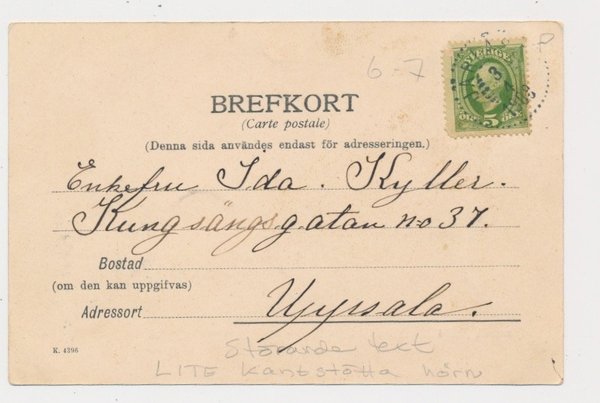 6-7
P
SVERIGE
5
BREFKORT
(Carte postale)
(Denna sida användes endast för adresseringen.)
Enkefru Ida. Kyller.
Kungsängsgatan no 37.
Bostad
(om den kan uppgifvas)
Adressort Uppsala.
K. 4396
Störande text
LITE kantstötta hörn